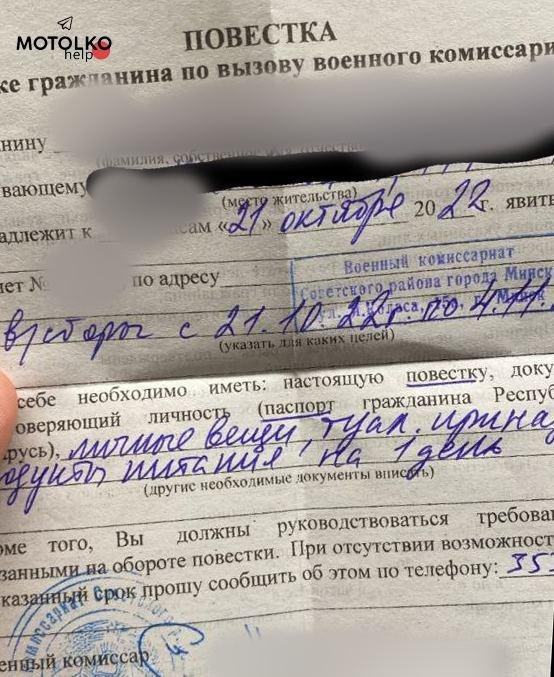 MOTOLKO
help
ПОВЕСТКА
ке гражданина по вызову военного комиссари
нину
(фамилия, собственное имя, отчество
вающему
(место жительства)
адлежит к сам «21» октября 2022г. явить
ет № по адресу
Военный комиссариат
Советского района города Минск
ул. Я.Коласа, 25
в/сборы с 21.10.22г. по 4.11.
(указать для каких целей)
себе необходимо иметь: настоящую повестку, доку
оверяющий личность (паспорт гражданина Респуб
арусь), личные вещи, туал. принад
одукты питания на 1 день
(другие необходимые документы вписать)
оме того, Вы должны руководствоваться требован
занными на обороте повестки. При отсутствии возможност
казанный срок прошу сообщить об этом по телефону: 35
енный комиссар